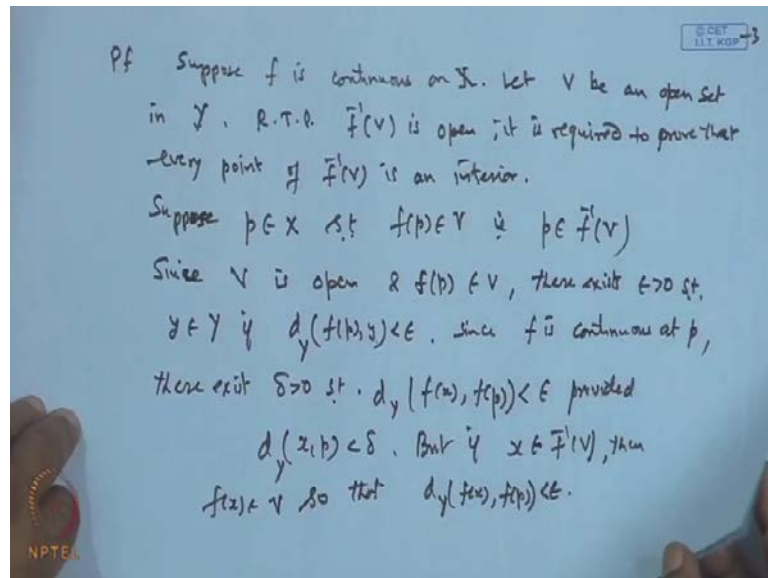 © CET
I.I.T. KGP
-3
Pf Suppose f is continuous on X. Let V be an open set
in Y. R.T.P. f⁻¹(V) is open ; it is required to prove that
every point of f⁻¹(V) is an interior.
Suppose p ∈ X s.t f(p) ∈ V ie p ∈ f⁻¹(V)
Since V is open & f(p) ∈ V, there exists ε>0 st.
y ∈ Y if d_y(f(p),y)<ε. Since f is continuous at p,
there exist δ>0 st. d_y(f(x), f(p))<ε provided
d_y(x,p)<δ. But if x ∈ f⁻¹(V), then
f(x) ∈ V so that d_y(f(x), f(p))<ε.
NPTEL